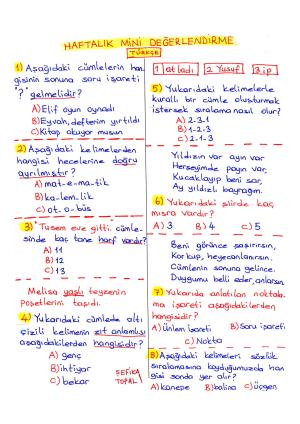 HAFTALIK MİNİ DEĞERLENDİRME
TÜRKÇE
1) Aşağıdaki cümlelerin han
gisinin sonuna soru işareti
"?" gelmelidir?
A) Elif oyun oynadı
B) Eyvah, defterim yırtıldı
C) Kitap okuyor musun
2) Aşağıdaki kelimelerden
hangisi hecelerine doğru
ayrılmıştır?
A) mat-e-ma-tik
B) ka-lem-lik
C) ot-o-büs
3) "Tusem eve gitti. cümle-
sinde kaç tane harf vardır?
A) 11
B) 12
C) 13
Melisa yaşlı teyzenin
poşetlerini taşıdı.
4) Yukarıdaki cümlede altı
çizili kelimenin zıt anlamlısı
aşağıdakilerden hangisidir?
A) genç
B) ihtiyar
C) bekar
ŞEFİKA
TOPAL
1 atladı 2 Yusuf 3 ip
5) Yukarıdaki kelimelerle
kurallı bir cümle oluşturmak
istersek sıralama nasıl olur?
A) 2-3-1
B) 1-2-3
C) 2-1-3
Yıldızın var ayın var
Herşeyimde payın var,
Kucaklayıp beni sar,
Ay yıldızlı bayrağım.
6) Yukarıdaki şiirde kaç
mısra vardır?
A) 3 B) 4 C) 5
Beni görünce şaşırırsın,
Korkup, heyecanlanırsın.
Cümlenin sonuna gelince.
Duygumu belli eder, anlarsın.
7) Yukarıda anlatılan nokta-
ma işareti aşağıdakilerden
hangisidir?
A) Ünlem işareti B) Soru işareti
C) Nokta
8) Aşağıdaki kelimeleri sözlük
sıralamasına koyduğumuzda han
gisi sonda yer alır?
A) kanepe B) balina C) üçgen